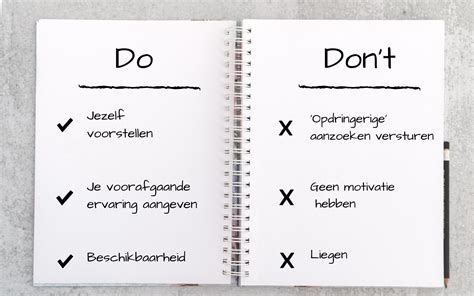 Do
Jezelf
voorstellen
Je voorafgaande
ervaring aangeven
Beschikbaarheid
Don't
'Opdringerige'
aanzoeken versturen
Geen motivatie
hebben
Liegen